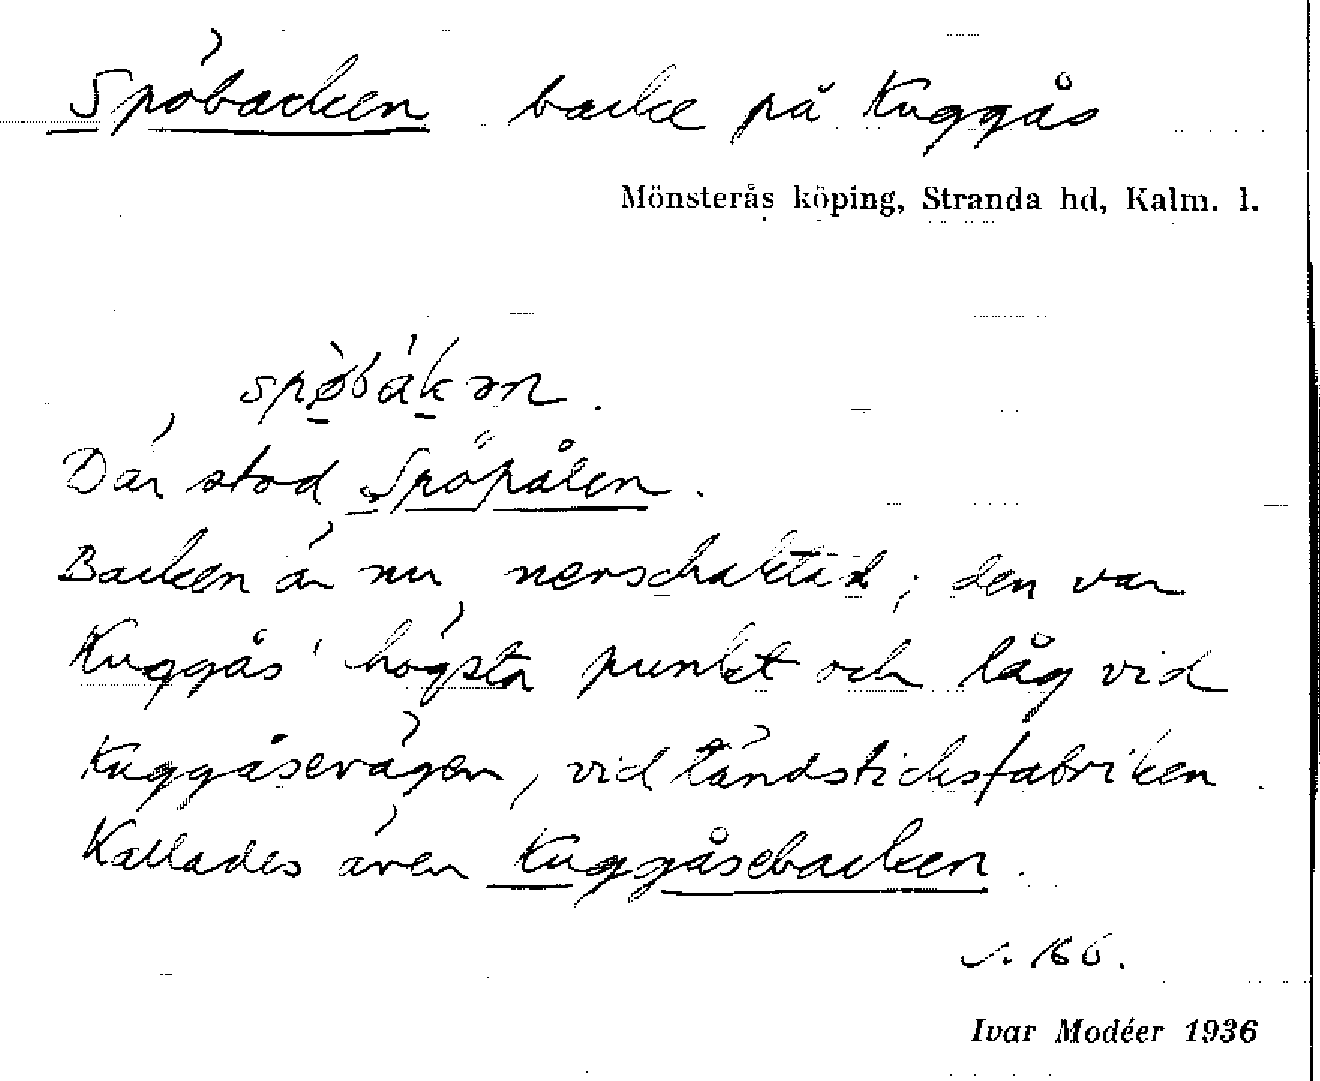 Spöbacken backe på Kuggås
Mönsterås köping, Stranda hd, Kalm. l.
spø̀bák ən.
Där stod Spöpålen.
Backen är nu nerschaktad; den var
Kuggås' högsta punkt och låg vid
Kuggåsevägen, vid tändsticksfabriken.
Kallades även Kuggåsebacken.
s. 166.
Ivar Modéer 1936